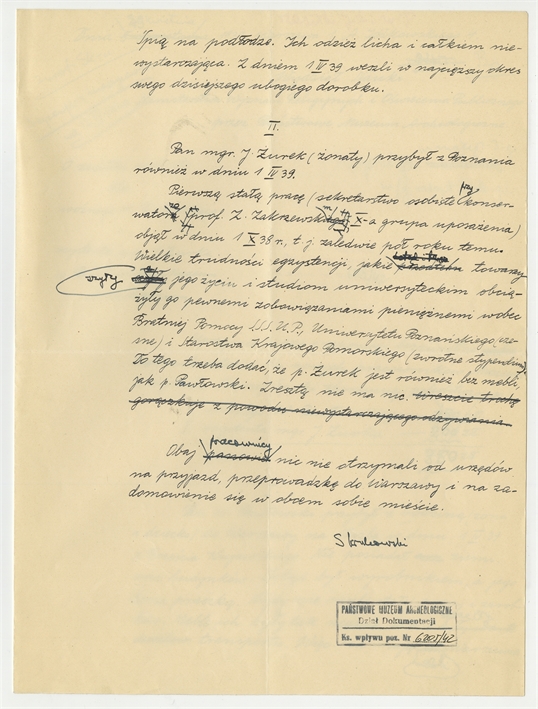 Śpią na podłodze. Ich odzież licha i całkiem nie-
wystarczająca. Z dniem 1 IV 39 weszli w najcięższy okres
swego dzisiejszego ubogiego dorobku.
II.
Pan mgr. J. Żurek (żonaty) przybył z Poznania
również w dniu 1 IV 39.
Pierwszą stałą pracę (sekretarstwo osobiste przy konser-
watorze prof. Z. Zakrzewskim X-a grupa uposażenia)
objął w dniu 1 X 38 r., t. j. zaledwie pół roku temu.
Wielkie trudności egzystencji, jakie towarzy
szyły jego życiu i studiom uniwersyteckim obcią-
żyły go pewnemi zobowiązaniami pieniężnemi wobec
Bratniej Pomocy U.P., Uniwersytetu Poznańskiego
i Starostwa Krajowego Pomorskiego (zwrotne stypendium).
Do tego trzeba dodać, że p. Żurek jest również bez mebli,
jak p. Pawłowski. Zresztą nie ma nic. Wreszcie trochę
gorączkuje z powodu niewystarczającego odżywiania.
Obaj pracownicy nic nie otrzymali od urzędów
na przyjazd, przeprowadzkę do Warszawy i na za-
domowienie się w obcem sobie mieście.
PAŃSTWOWE MUZEUM ARCHEOLOGICZNE
Dział Dokumentacji
Ks. wpływu poz. Nr 6205/42